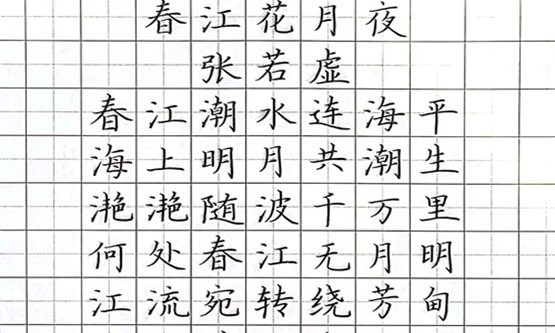 春江花月夜
张若虚
春江潮水连海平
海上明月共潮生
滟滟随波千万里
何处春江无月明
江流宛转绕芳甸